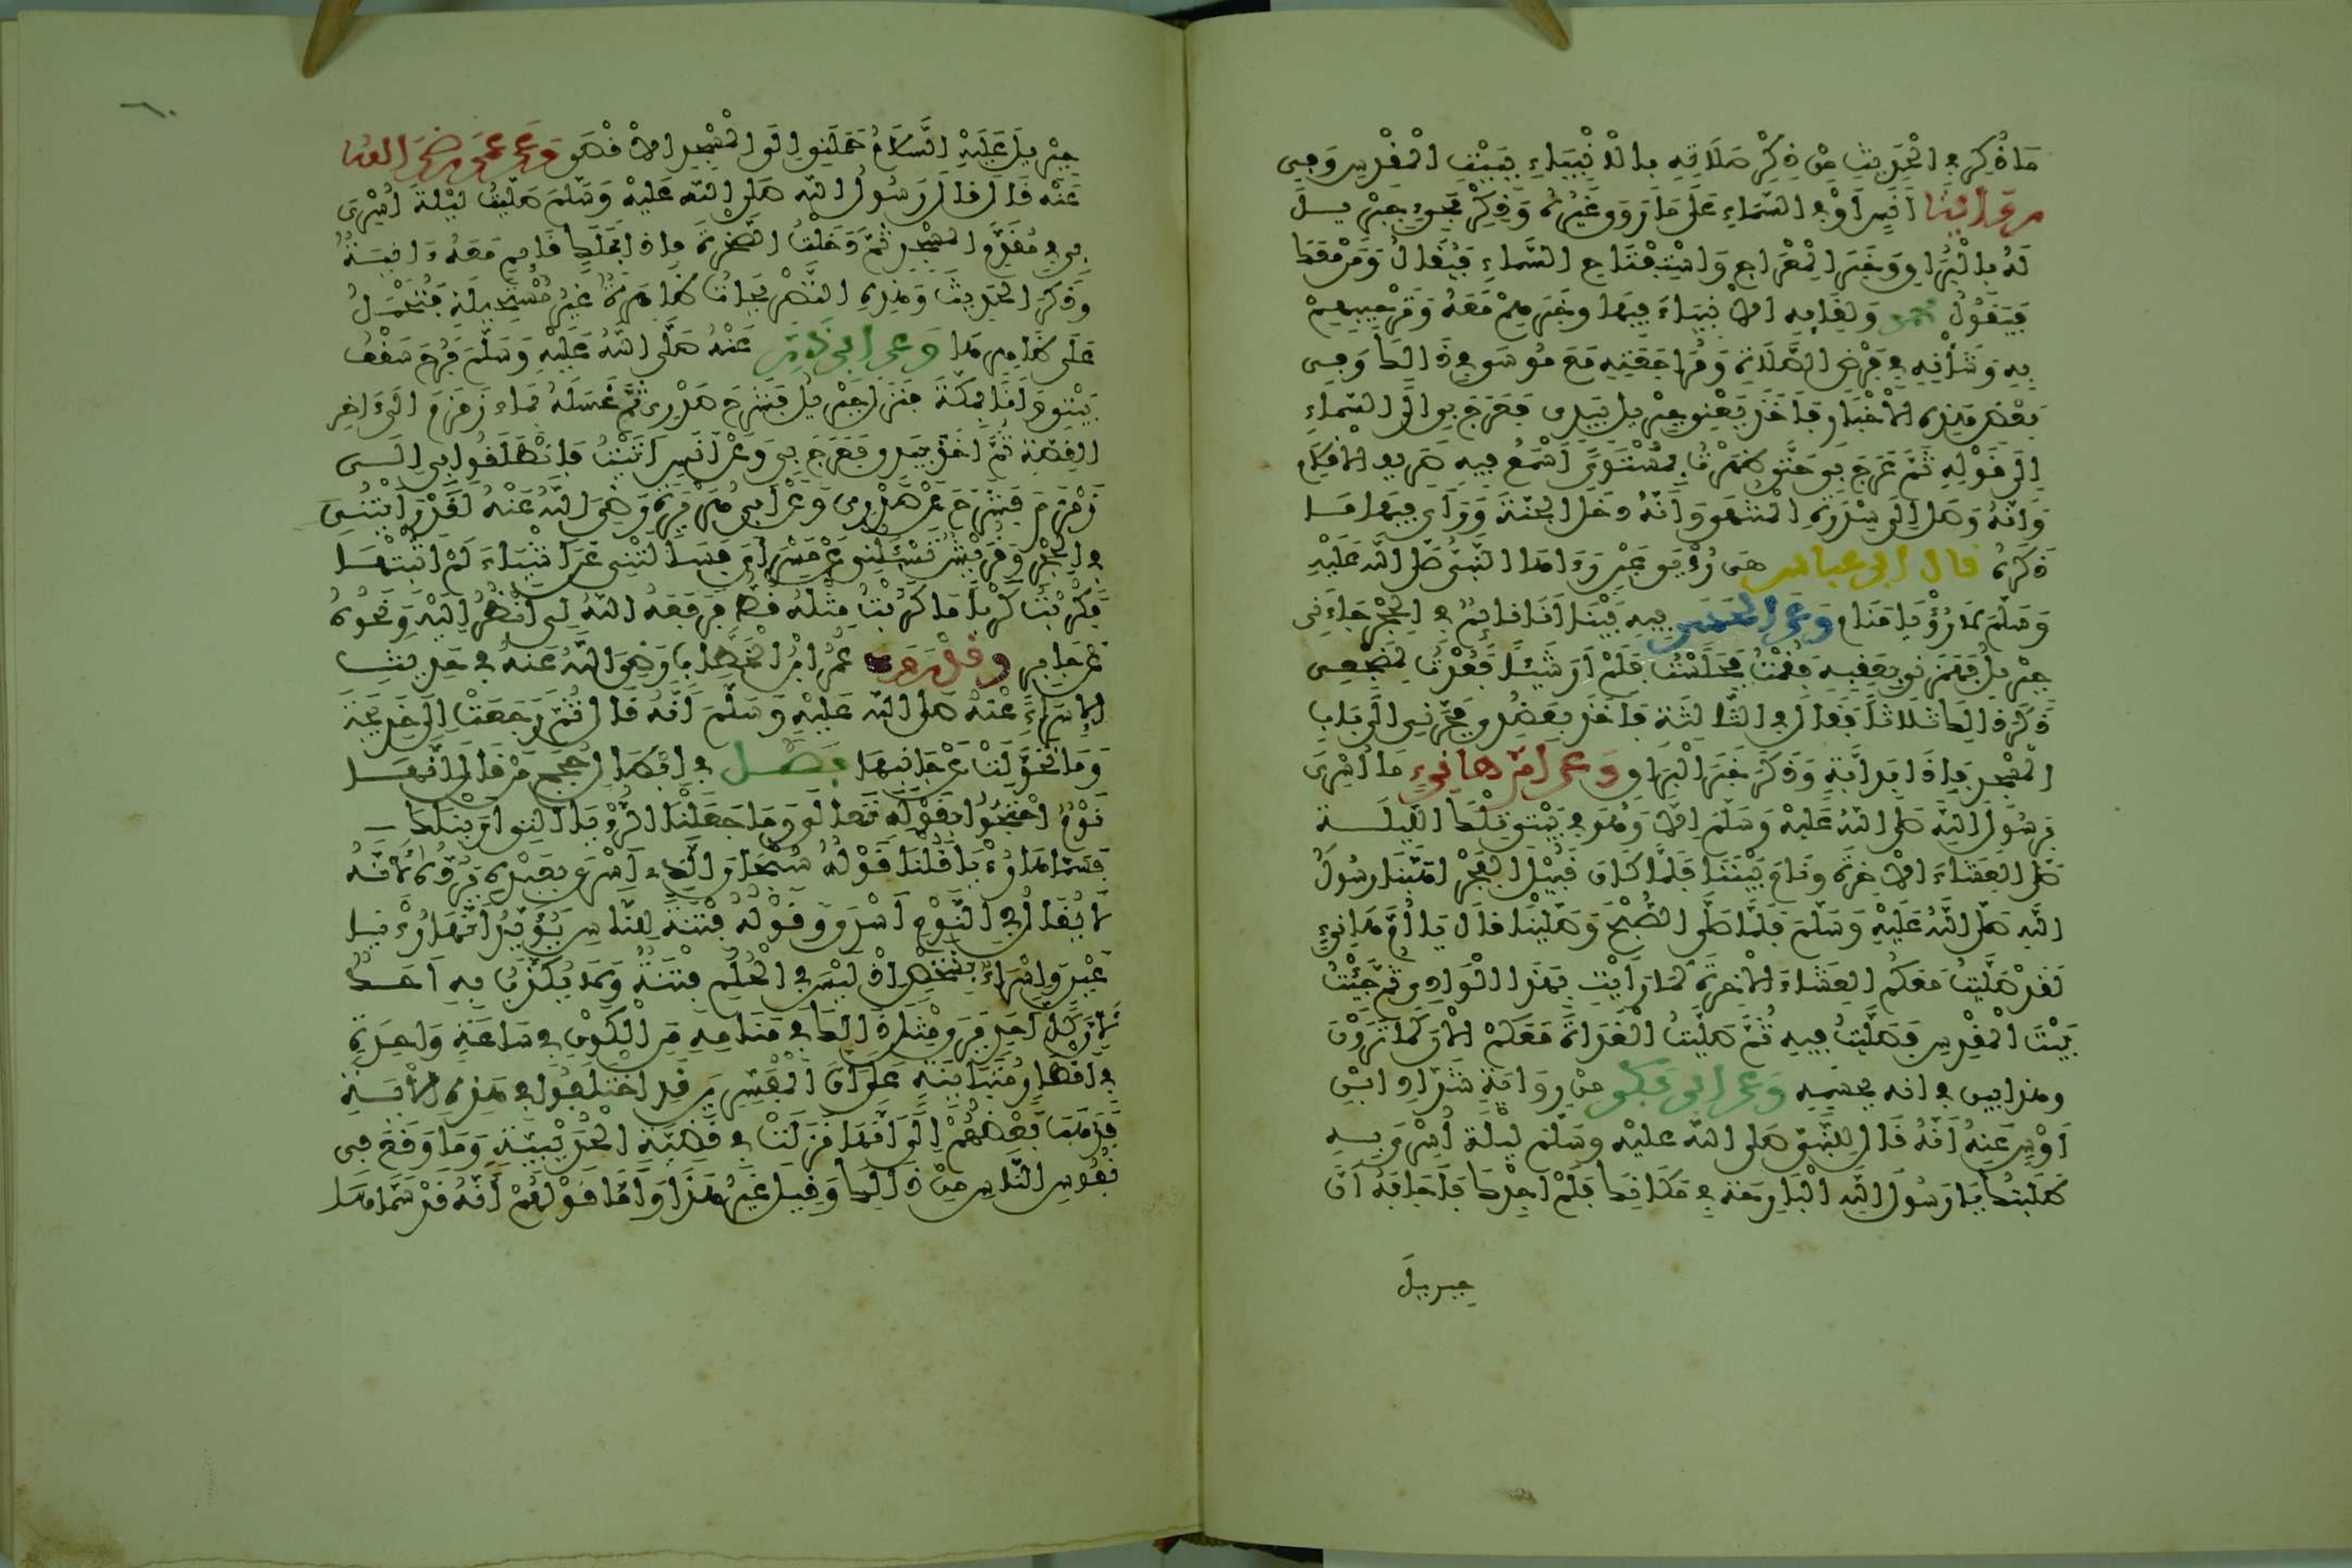 مَا ذُكِرَ فِي الْحَدِيثِ مِنْ ذِكْرِ صَلَاتِهِ بِالْأَنْبِيَاءِ بِبَيْتِ الْمَقْدِسِ وَفِي
أَنَسٍ أَوْ فِي السَّمَاءِ عَلَى مَا رَوَى غَيْرُهُ وَذِكْرِ مَجِيءِ جِبْرِيلَ
لَهُ بِالْبُرَاقِ وَخَبَرِ الْمِعْرَاجِ وَاسْتِفْتَاحِ السَّمَاءِ فَيُقَالُ وَمَنْ مَعَكَ
فَيَقُولُ محمد وَلِقَائِهِ الْأَنْبِيَاءَ فِيهَا وَخَبَرِهِمْ مَعَهُ وَتَرْحِيبِهِمْ
بِهِ وَشَأْنِهِ فِي فَرْضِ الصَّلَاةِ وَمُرَاجَعَتِهِ مَعَ مُوسَى فِي ذَالِكَ وَفِي
بَعْضِ هَذِهِ الْأَخْبَارِ فَأَخَذَ يَعْنِي جِبْرِيلُ بِيَدِي فَعَرَجَ بِي إِلَى السَّمَاءِ
إِلَى قَوْلِهِ ثُمَّ عَرَجَ بِي حَتَّى ظَهَرْتُ بِمُسْتَوًى أَسْمَعُ فِيهِ صَرِيفَ الْأَقْلَامِ
وَأَنَّهُ وَصَلَ إِلَى سِدْرَةِ الْمُنْتَهَى وَأَنَّهُ دَخَلَ الْجَنَّةَ وَرَأَى فِيهَا مَا
ذَكَرَهُ قال ابن عباس هِيَ رُؤْيَا عَيْنٍ رَءَاهَا النَّبِيُّ صَلَّى اللَّهُ عَلَيْهِ
وَسَلَّمَ لَا رُؤْيَا مَنَامٍ وَعَنِ الحسن فِيهِ بَيْنَا أَنَا نَائِمٌ فِي الْحِجْرِ جَاءَنِي
جِبْرِيلُ فَهَمَزَنِي بِعَقِبِهِ فَقُمْتُ فَجَلَسْتُ فَلَمْ أَرَ شَيْئًا فَعُدْتُ لِمَضْجَعِي
ذَكَرَ ذَالِكَ ثَلَاثًا فَقَالَ فِي الثَّالِثَةِ فَأَخَذَ بِعَضُدِي فَجَرَّنِي إِلَى بَابِ
الْمَسْجِدِ فَإِذَا بِدَابَّةٍ وَذَكَرَ خَبَرَ الْبُرَاقِ وَعَنْ أُمِّ هَانِئٍ مَا أُسْرِيَ
بِرَسُولِ اللَّهِ صَلَّى اللَّهُ عَلَيْهِ وَسَلَّمَ إِلَّا وَهُوَ فِي بَيْتِي تِلْكَ اللَّيْلَةَ
صَلَّى الْعِشَاءَ الْآخِرَةَ وَنَامَ بَيْنَنَا فَلَمَّا كَانَ قُبَيْلَ الْفَجْرِ أَهَبَّنَا رَسُولُ
اللَّهِ صَلَّى اللَّهُ عَلَيْهِ وَسَلَّمَ فَلَمَّا صَلَّى الصُّبْحَ وَصَلَّيْنَا قَالَ يَا أُمَّ هَانِئٍ
لَقَدْ صَلَّيْتُ مَعَكُمُ الْعِشَاءَ الْآخِرَةَ كَمَا رَأَيْتِ بِهَذَا الْوَادِي ثُمَّ جِئْتُ
بَيْتَ الْمَقْدِسِ فَصَلَّيْتُ فِيهِ ثُمَّ صَلَّيْتُ الْغَدَاةَ مَعَكُمُ الْآنَ كَمَا تَرَوْنَ
وهذا بين في انه بجسمه وَعَنْ أَبِي بَكْرٍ مِنْ رِوَايَةِ شَدَّادِ ابْنِ
أَوْسٍ عَنْهُ أَنَّهُ قَالَ لِلنَّبِيِّ صَلَّى اللَّهُ عَلَيْهِ وَسَلَّمَ لَيْلَةَ أُسْرِيَ بِهِ
طَلَبْتُكَ يَا رَسُولَ اللَّهِ الْبَارِحَةَ فِي مَكَانِكَ فَلَمْ أَجِدْكَ فَأَجَابَهُ أَنَّ
جبريلَ
جِبْرِيلَ عَلَيْهِ السَّلَامُ حَمَلَنِي إِلَى الْمَسْجِدِ الْأَقْصَى وَعَنْ عُمَرَ رَضِيَ اللَّهُ
عَنْهُ قَالَ قَالَ رَسُولُ اللَّهِ صَلَّى اللَّهُ عَلَيْهِ وَسَلَّمَ صَلَّيْتُ لَيْلَةَ أُسْرِيَ
بِي فِي مُقَدَّمِ الْمَسْجِدِ ثُمَّ دَخَلْتُ الصَّخْرَةَ فَإِذَا بِمَلَكٍ قَائِمٍ مَعَهُ ءَانِيَةٌ
وَذَكَرَ الْحَدِيثَ وَهَذِهِ التَّصْرِيحَاتُ ظَاهِرَةٌ غَيْرُ مُسْتَحِيلَةٍ فَتُحْمَلُ
عَلَى ظَاهِرِهَا وَعَنْ أَبِي ذَرٍّ عَنْهُ صَلَّى اللَّهُ عَلَيْهِ وَسَلَّمَ فُرِجَ سَقْفُ
بَيْتِي وَأَنَا بِمَكَّةَ فَنَزَلَ جِبْرِيلُ فَشَرَحَ صَدْرِي ثُمَّ غَسَلَهُ بِمَاءِ زَمْزَمَ إِلَى ءَاخِرِ
الْقِصَّةِ ثُمَّ أَخَذَ بِيَدِي فَعَرَجَ بِي وَعَنْ أَنَسٍ أُتِيتُ فَانْطَلَقُوا بِي إِلَى
زَمْزَمَ فَشُرِحَ عَنْ صَدْرِي وَعَنْ أَبِي هُرَيْرَةَ رَضِيَ اللَّهُ عَنْهُ لَقَدْ رَأَيْتُنِي
فِي الْحِجْرِ وَقُرَيْشٌ تَسْئَلُنِي عَنْ مَسْرَايَ فَسَأَلَتْنِي عَنْ أَشْيَاءَ لَمْ أُثْبِتْهَا
فَكُرِبْتُ كَرْبًا مَا كُرِبْتُ مِثْلَهُ قَطُّ فَرَفَعَهُ اللَّهُ لِي أَنْظُرُ إِلَيْهِ وَنَحْوُهُ
عَنْ جَابِرٍ وقد روى عُمَرُ ابْنُ الْخَطَّابِ رَضِيَ اللَّهُ عَنْهُ فِي حَدِيثِ
الْإِسْرَاءِ عَنْهُ صَلَّى اللَّهُ عَلَيْهِ وَسَلَّمَ أَنَّهُ قَالَ ثُمَّ رَجَعْتُ إِلَى خَدِيجَةَ
وَمَا تَحَوَّلَتْ عَنْ جَانِبِهَا فصل فِي إِبْطَالِ حُجَجِ مَنْ قَالَ إِنَّهَا
نَوْمٌ احْتَجُّوا بِقَوْلِهِ تَعَالَى وَمَا جَعَلْنَا الرُّؤْيَا الَّتِي أَرَيْنَاكَ
فَسَمَّاهَا رُؤْيَا قُلْنَا قَوْلُهُ سُبْحَانَ الَّذِي أَسْرَى بِعَبْدِهِ يَرُدُّهُ لِأَنَّهُ
لَا يُقَالُ فِي النَّوْمِ أَسْرَى وَقَوْلُهُ فِتْنَةً لِلنَّاسِ يُؤَيِّدُ أَنَّهَا رُؤْيَا
عَيْنٍ وَإِسْرَاءُ بِشَخْصٍ إِذْ لَيْسَ فِي الْحُلْمِ فِتْنَةٌ وَلَا يُكَذِّبُ بِهِ أَحَدٌ
لِأَنَّ كُلَّ أَحَدٍ يَرَى مِثْلَ ذَالِكَ فِي مَنَامِهِ مِنَ الْكَوْنِ فِي سَاعَةٍ وَاحِدَةٍ
فِي أَقْطَارٍ مُتَبَايِنَةٍ عَلَى أَنَّ الْمُفَسِّرِينَ قَدِ اخْتَلَفُوا فِي هَذِهِ الْآيَةِ
فَذَهَبَ بَعْضُهُمْ إِلَى أَنَّهَا نَزَلَتْ فِي قَضِيَّةِ الْحُدَيْبِيَةِ وَمَا وَقَعَ فِي
نُفُوسِ النَّاسِ مِنْ ذَالِكَ وَقِيلَ غَيْرُ هَذَا وَأَمَّا قَوْلُهُمْ أَنَّهُ قَدْ سَمَّاهَا